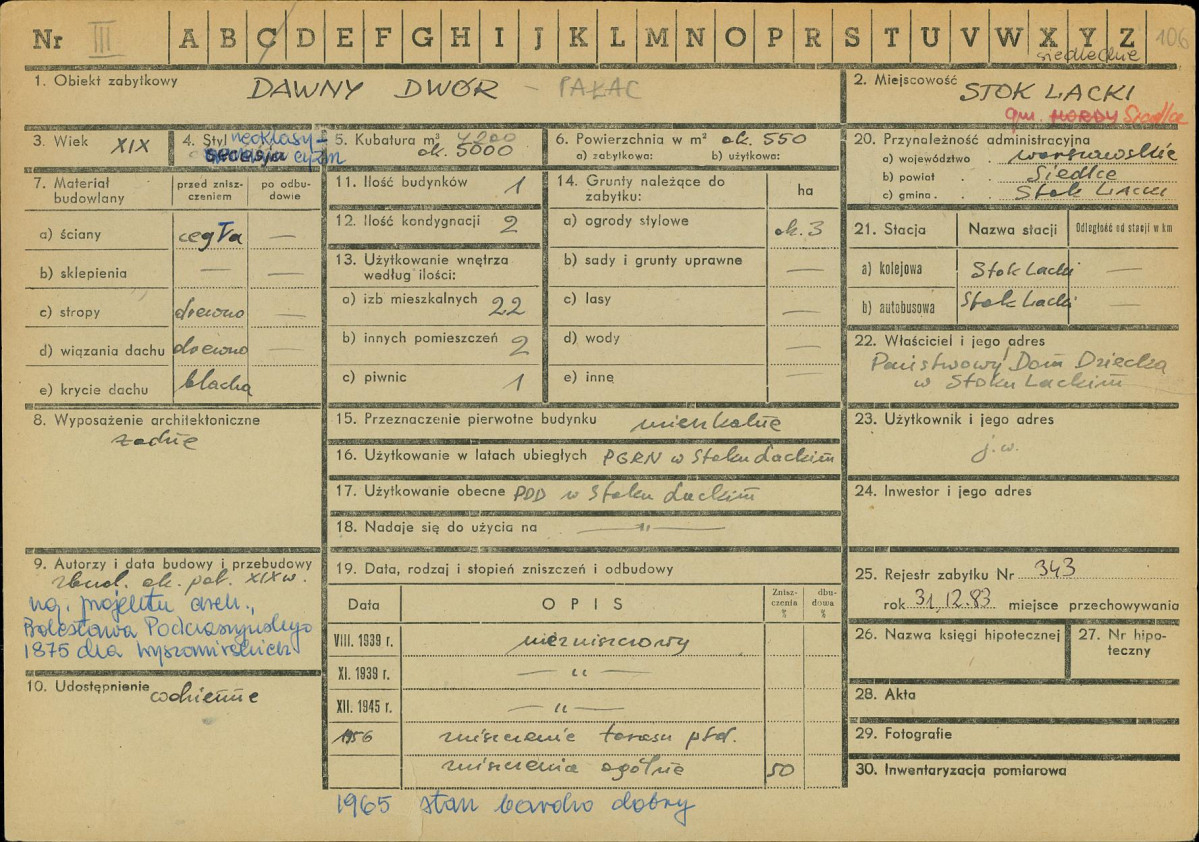 Nr III A B C D E F G H I J K L M N O P R S T U V W X Y Z 106
siedleckie
1. Obiekt zabytkowy DAWNY DWÓR - PAŁAC
2. Miejscowość STOK LACKI
gm. MORDY Siedlce
3. Wiek XIX
4. Styl neoklasy-
secesja cyzm
5. Kubatura m³ 4200
ok. 5000
6. Powierzchnia w m² ok. 550
a) zabytkowa: b) użytkowa:
7. Materiał budowlany
przed znisz-
czeniem
po odbu-
dowie
a) ściany cegła —
b) sklepienia — —
c) stropy drewno —
d) wiązania dachu drewno —
e) krycie dachu blacha —
8. Wyposażenie architektoniczne
żadne
9. Autorzy i data budowy i przebudowy
zbud. ok. poł. XIX w.
wg. projektu arch.,
Bolesława Podczaszyńskiego
1875 dla Wyszomirskich
10. Udostępnienie codzienne
11. Ilość budynków 1
12. Ilość kondygnacji 2
13. Użytkowanie wnętrza
według ilości:
a) izb mieszkalnych 22
b) innych pomieszczeń 2
c) piwnic 1
14. Grunty należące do
zabytku:
ha
a) ogrody stylowe ok. 3
b) sady i grunty uprawne —
c) lasy —
d) wody —
e) inne —
15. Przeznaczenie pierwotne budynku mieszkalne
16. Użytkowanie w latach ubiegłych PGRN w Stoku Lackim
17. Użytkowanie obecne PDD w Stoku Lackim
18. Nadaje się do użycia na — " —
19. Data, rodzaj i stopień zniszczeń i odbudowy
Data OPIS
Znisz-
czenia
%
dbu-
dowa
%
VIII. 1939 r. niezniszczony
XI. 1939 r. — " —
XII. 1945 r. — " —
1956 zniszczenie tarasu płd.
zniszczenia ogólne 50
1965 stan bardzo dobry
20. Przynależność administracyjna
a) województwo . warszawskie
b) powiat . . Siedlce
c) gmina . . . Stok Lacki
21. Stacja Nazwa stacji Odległość od stacji w km
a) kolejowa Stok Lacki —
b) autobusowa Stok Lacki —
22. Właściciel i jego adres
Państwowy Dom Dziecka
w Stoku Lackim
23. Użytkownik i jego adres
j.w.
24. Inwestor i jego adres
25. Rejestr zabytku Nr 343
rok 31.12.83 miejsce przechowywania
26. Nazwa księgi hipotecznej
27. Nr hipo-
teczny
28. Akta
29. Fotografie
30. Inwentaryzacja pomiarowa